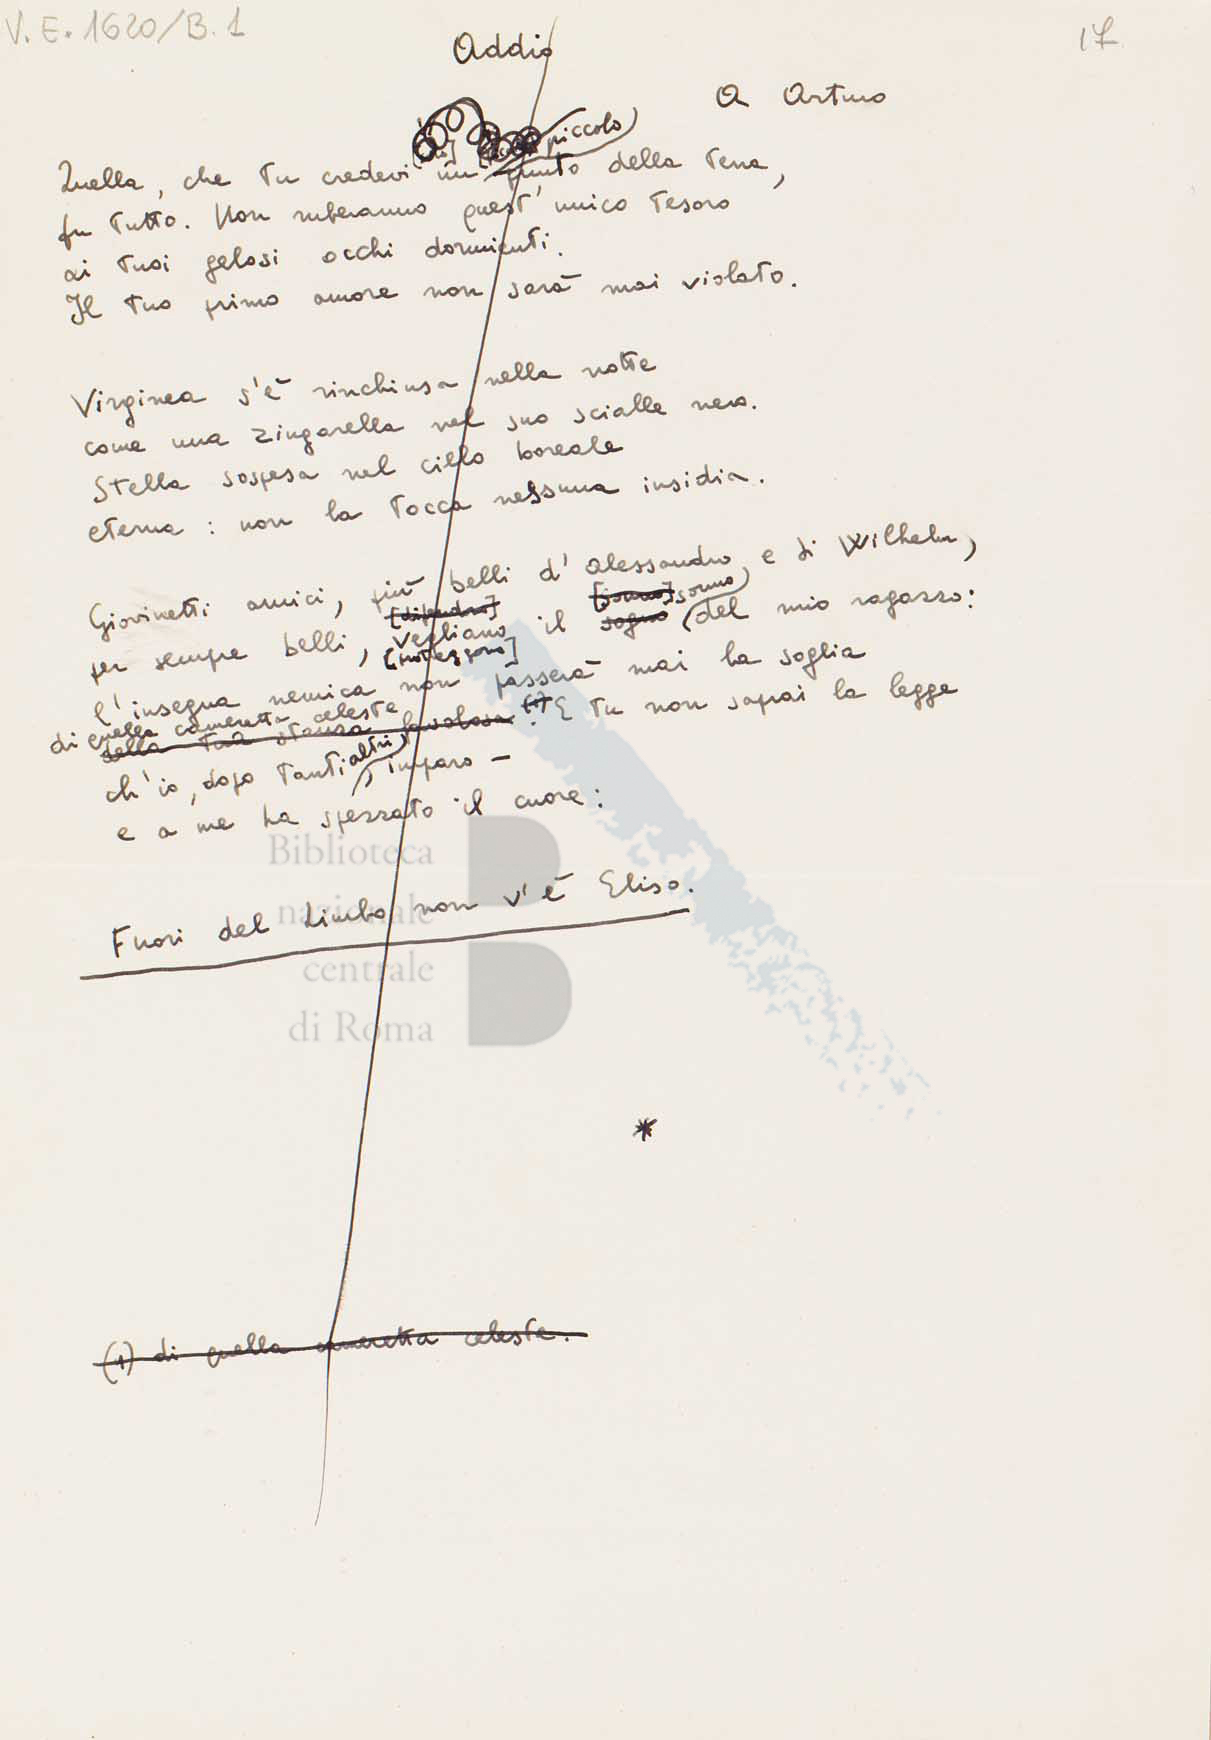 V. E. 1620/B. 1
17
Addio
A Arturo
piccolo
Quella, che tu credevi un punto della terra,
fu tutto. Non ruberanno quest'unico tesoro
ai tuoi gelosi occhi dormienti.
Il tuo primo amore non sarà mai violato.
Virginea s'è rinchiusa nella notte
come una zingarella nel suo scialle nero.
Stella sospesa nel cielo boreale
eterna: non la tocca nessuna insidia.
Giovinetti amici, più belli d'Alessandro e di Wilhelm,
[difendono] [sonno] sonno
per sempre belli, vegliano il sogno del mio ragazzo:
[proteggono]
l'insegna nemica non passerà mai la soglia
di quella cameretta celeste
della tua stanza favolosa (1). E tu non saprai la legge
altri,
ch'io, dopo tanti, imparo –
e a me ha spezzato il cuore:
Fuori del Limbo non v'è Eliso.
Biblioteca
nazionale
centrale
di Roma
*
(1) di quella cameretta celeste.